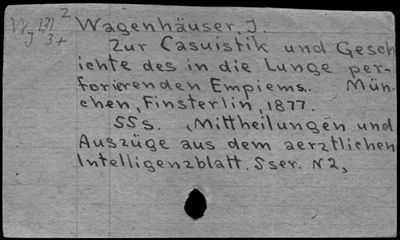 W 131 2
J 3+
Wagenhäuser, J.
Zur Casuistik und Gesch
ichte des in die Lunge per-
forierenden Empiems. Mün-
chen, Finsterlin, 1877.
55s. (Mittheilungen und
Auszüge aus dem aerztlichen
Intelligenzblatt. 5ser. N2,